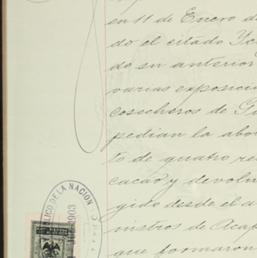 en 11 de Enero d
do el citado Yc
do su anterior
varias exposici
cosecheros de G
pedian la abo
to de quatro re
cacao y devolu
gido desde el a
nistros de Acap
que formaron
LICO DE LA NACION